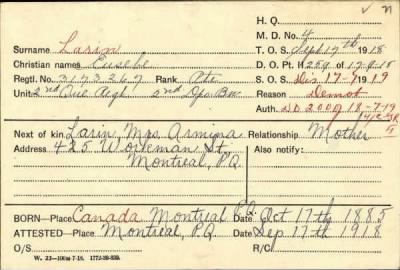 ✓ n
H. Q.
M. D. No. 4
Surname Larin
T. O. S. Sept 17th 1918
Christian names Eusebe
D. O. Pt. II 259 of 17-9-18
Regtl. No. 3173267 Rank Pte
S. O. S. Dis 17-7-1919
Unit 2nd Que Regt 2nd Dpo Bn
Reason Demob
Auth. DD 2009 18-7-19
Next of kin Larin, Mrs Armina Relationship Mother
Address 425 Workman St. Also notify:
Montreal, P.Q.
BORN—Place Canada, Montreal P.Q. Date Oct 17th 1885
ATTESTED—Place Montreal, P.Q. Date Sep 17th 1918
O/S R/C
W. 23—100m-7-18. 1772-39-839.